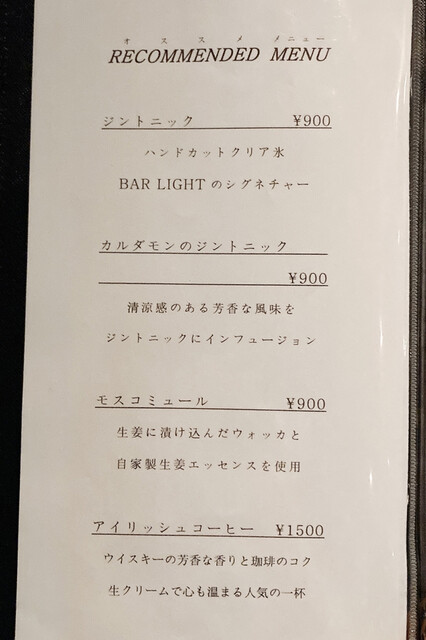 オススメメニュー
RECOMMENDED MENU
ジントニック ¥900
ハンドカットクリア氷
BAR LIGHTのシグネチャー
カルダモンのジントニック
¥900
清涼感のある芳香な風味を
ジントニックにインフュージョン
モスコミュール ¥900
生姜に漬け込んだウォッカと
自家製生姜エッセンスを使用
アイリッシュコーヒー ¥1500
ウイスキーの芳香な香りと珈琲のコク
生クリームで心も温まる人気の一杯